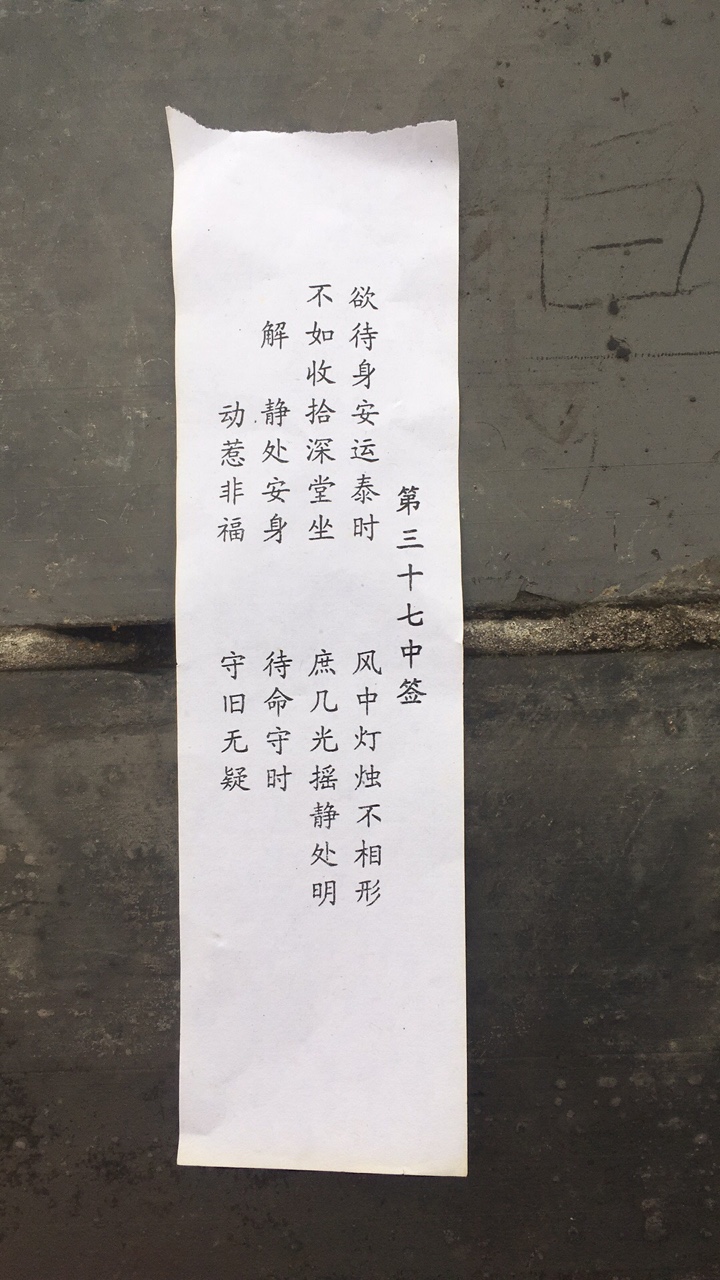 第三十七中签
欲待身安运泰时 风中灯烛不相形
不如收拾深堂坐 庶几光摇静处明
解 静处安身 待命守时
动惹非福 守旧无疑